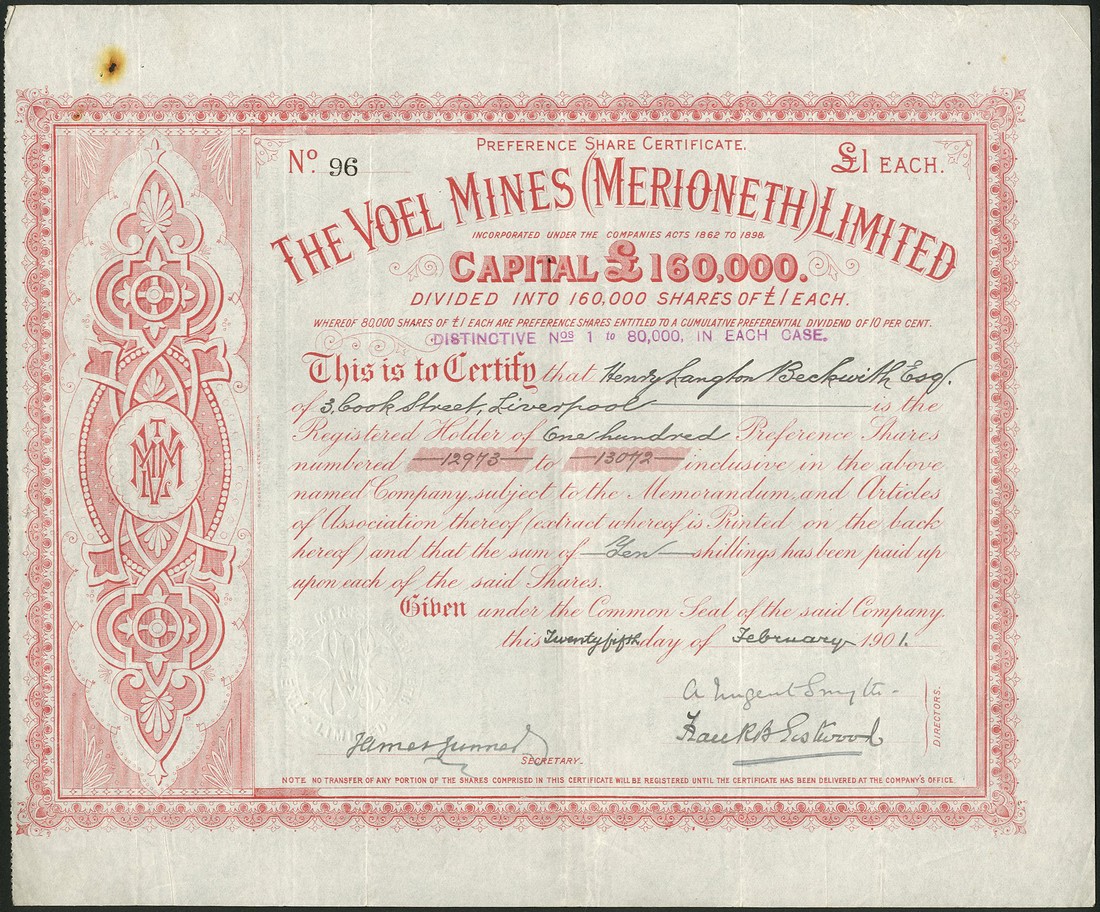 PREFERENCE SHARE CERTIFICATE.
No. 96
£1 EACH.
THE VOEL MINES (MERIONETH) LIMITED
INCORPORATED UNDER THE COMPANIES ACTS 1862 TO 1898.
CAPITAL £160,000.
DIVIDED INTO 160,000 SHARES OF £1 EACH.
WHEREOF 80,000 SHARES OF £1 EACH ARE PREFERENCE SHARES ENTITLED TO A CUMULATIVE PREFERENTIAL DIVIDEND OF 10 PER CENT.
DISTINCTIVE Nos 1 to 80,000, IN EACH CASE.
This is to Certify that Henry Langton Beckwith Esq.
of 3, Cook Street, Liverpool is the
Registered Holder of One hundred Preference Shares
numbered 12973 to 13072 inclusive in the above
named Company, subject to the Memorandum, and Articles
of Association thereof (extract whereof is Printed on the back
hereof) and that the sum of Ten shillings has been paid up
upon each of the said Shares.
Given under the Common Seal of the said Company,
this Twenty fifth day of February 1901.
A Nugent Smyth
Frank B Eastwood
DIRECTORS.
James
SECRETARY.
NOTE NO TRANSFER OF ANY PORTION OF THE SHARES COMPRISED IN THIS CERTIFICATE WILL BE REGISTERED UNTIL THE CERTIFICATE HAS BEEN DELIVERED AT THE COMPANY'S OFFICE.